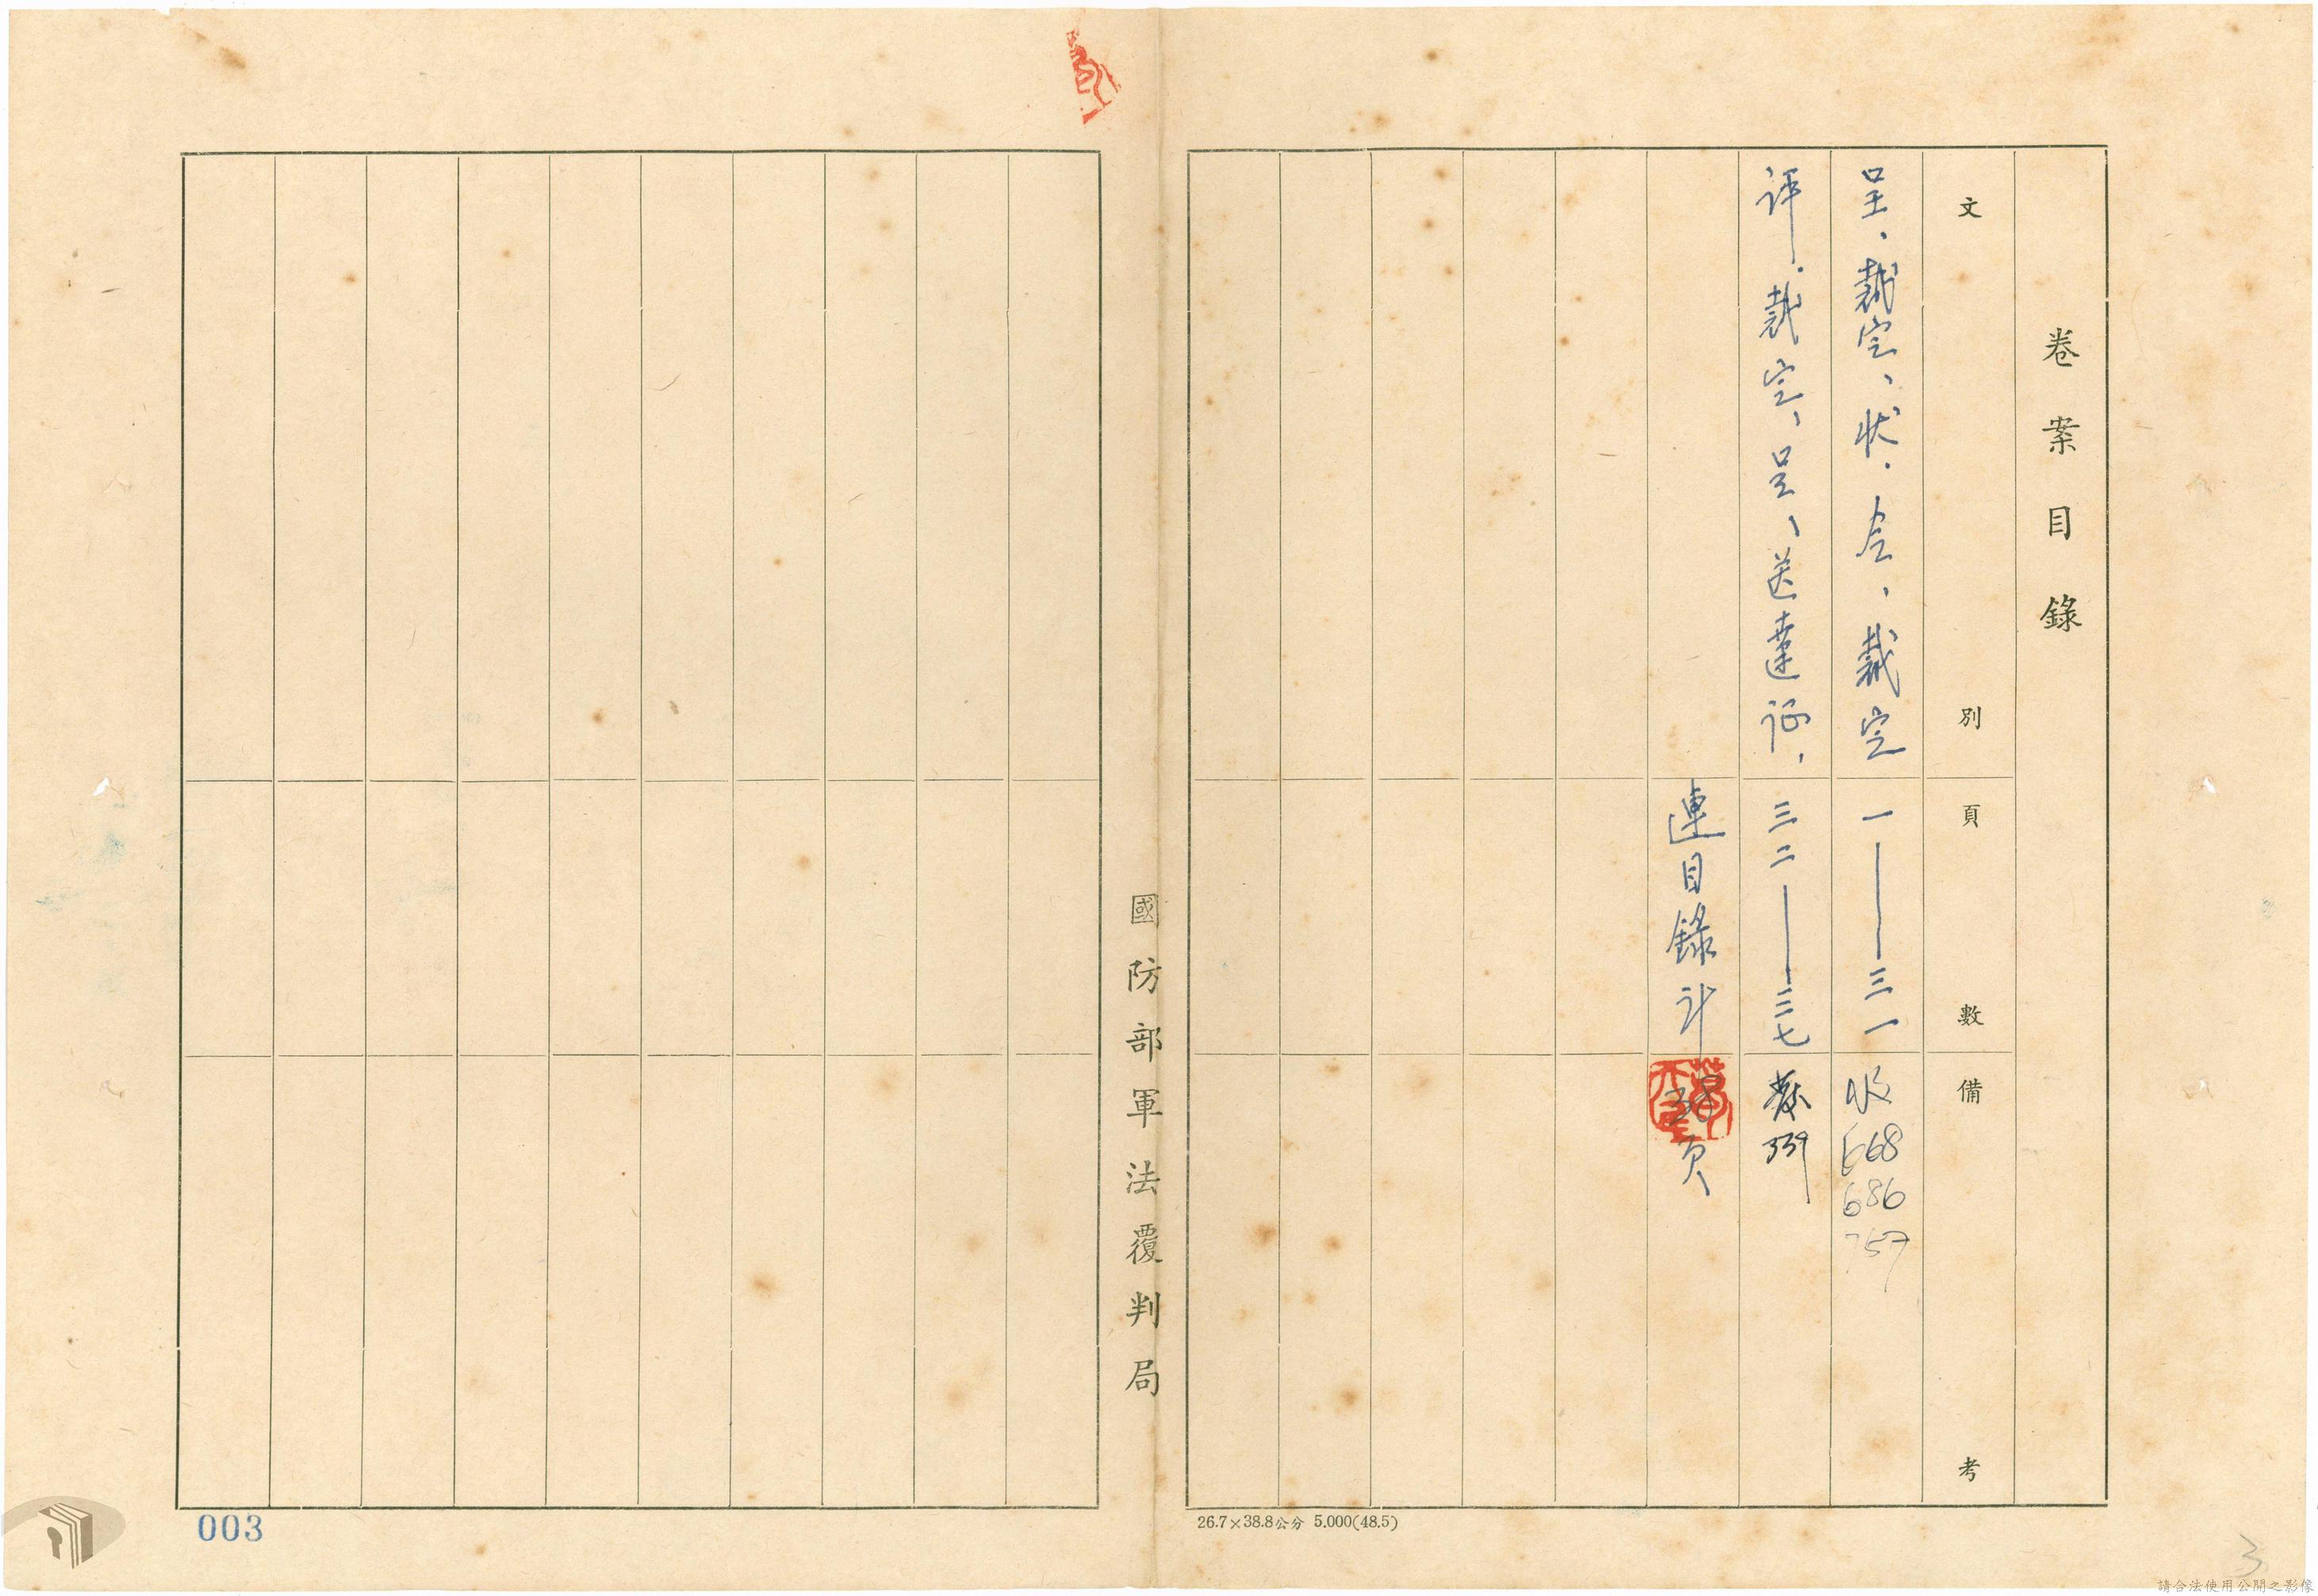 卷案目錄
文別
頁數
備考
呈、裁定、狀、令、裁定
一——三一
收
668
686
757
評、裁定、呈、送達证、
三二——三七
339
連目錄計
38頁
國防部軍法覆判局
26.7×38.8公分 5.000(48.5)
003
3
請合法使用公開之影像